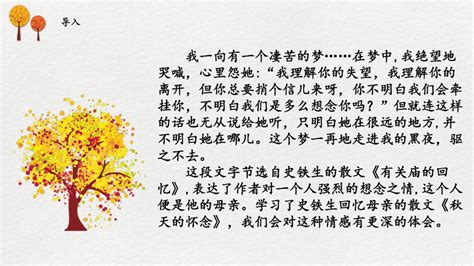 导入
我一向有一个凄苦的梦……在梦中,我绝望地
哭喊，心里怨她:“我理解你的失望，我理解你的
离开，但你总要捎个信儿来呀，你不明白我们会牵
挂你，不明白我们是多么想念你吗？”但就连这样
的话也无从说给她听，只明白她在很远的地方,并
不明白她在哪儿。这个梦一再地走进我的黑夜，驱
之不去。
这段文字节选自史铁生的散文《有关庙的回
忆》,表达了作者对一个人强烈的想念之情,这个人
便是他的母亲。学习了史铁生回忆母亲的散文《秋
天的怀念》，我们会对这种情感有更深的体会。